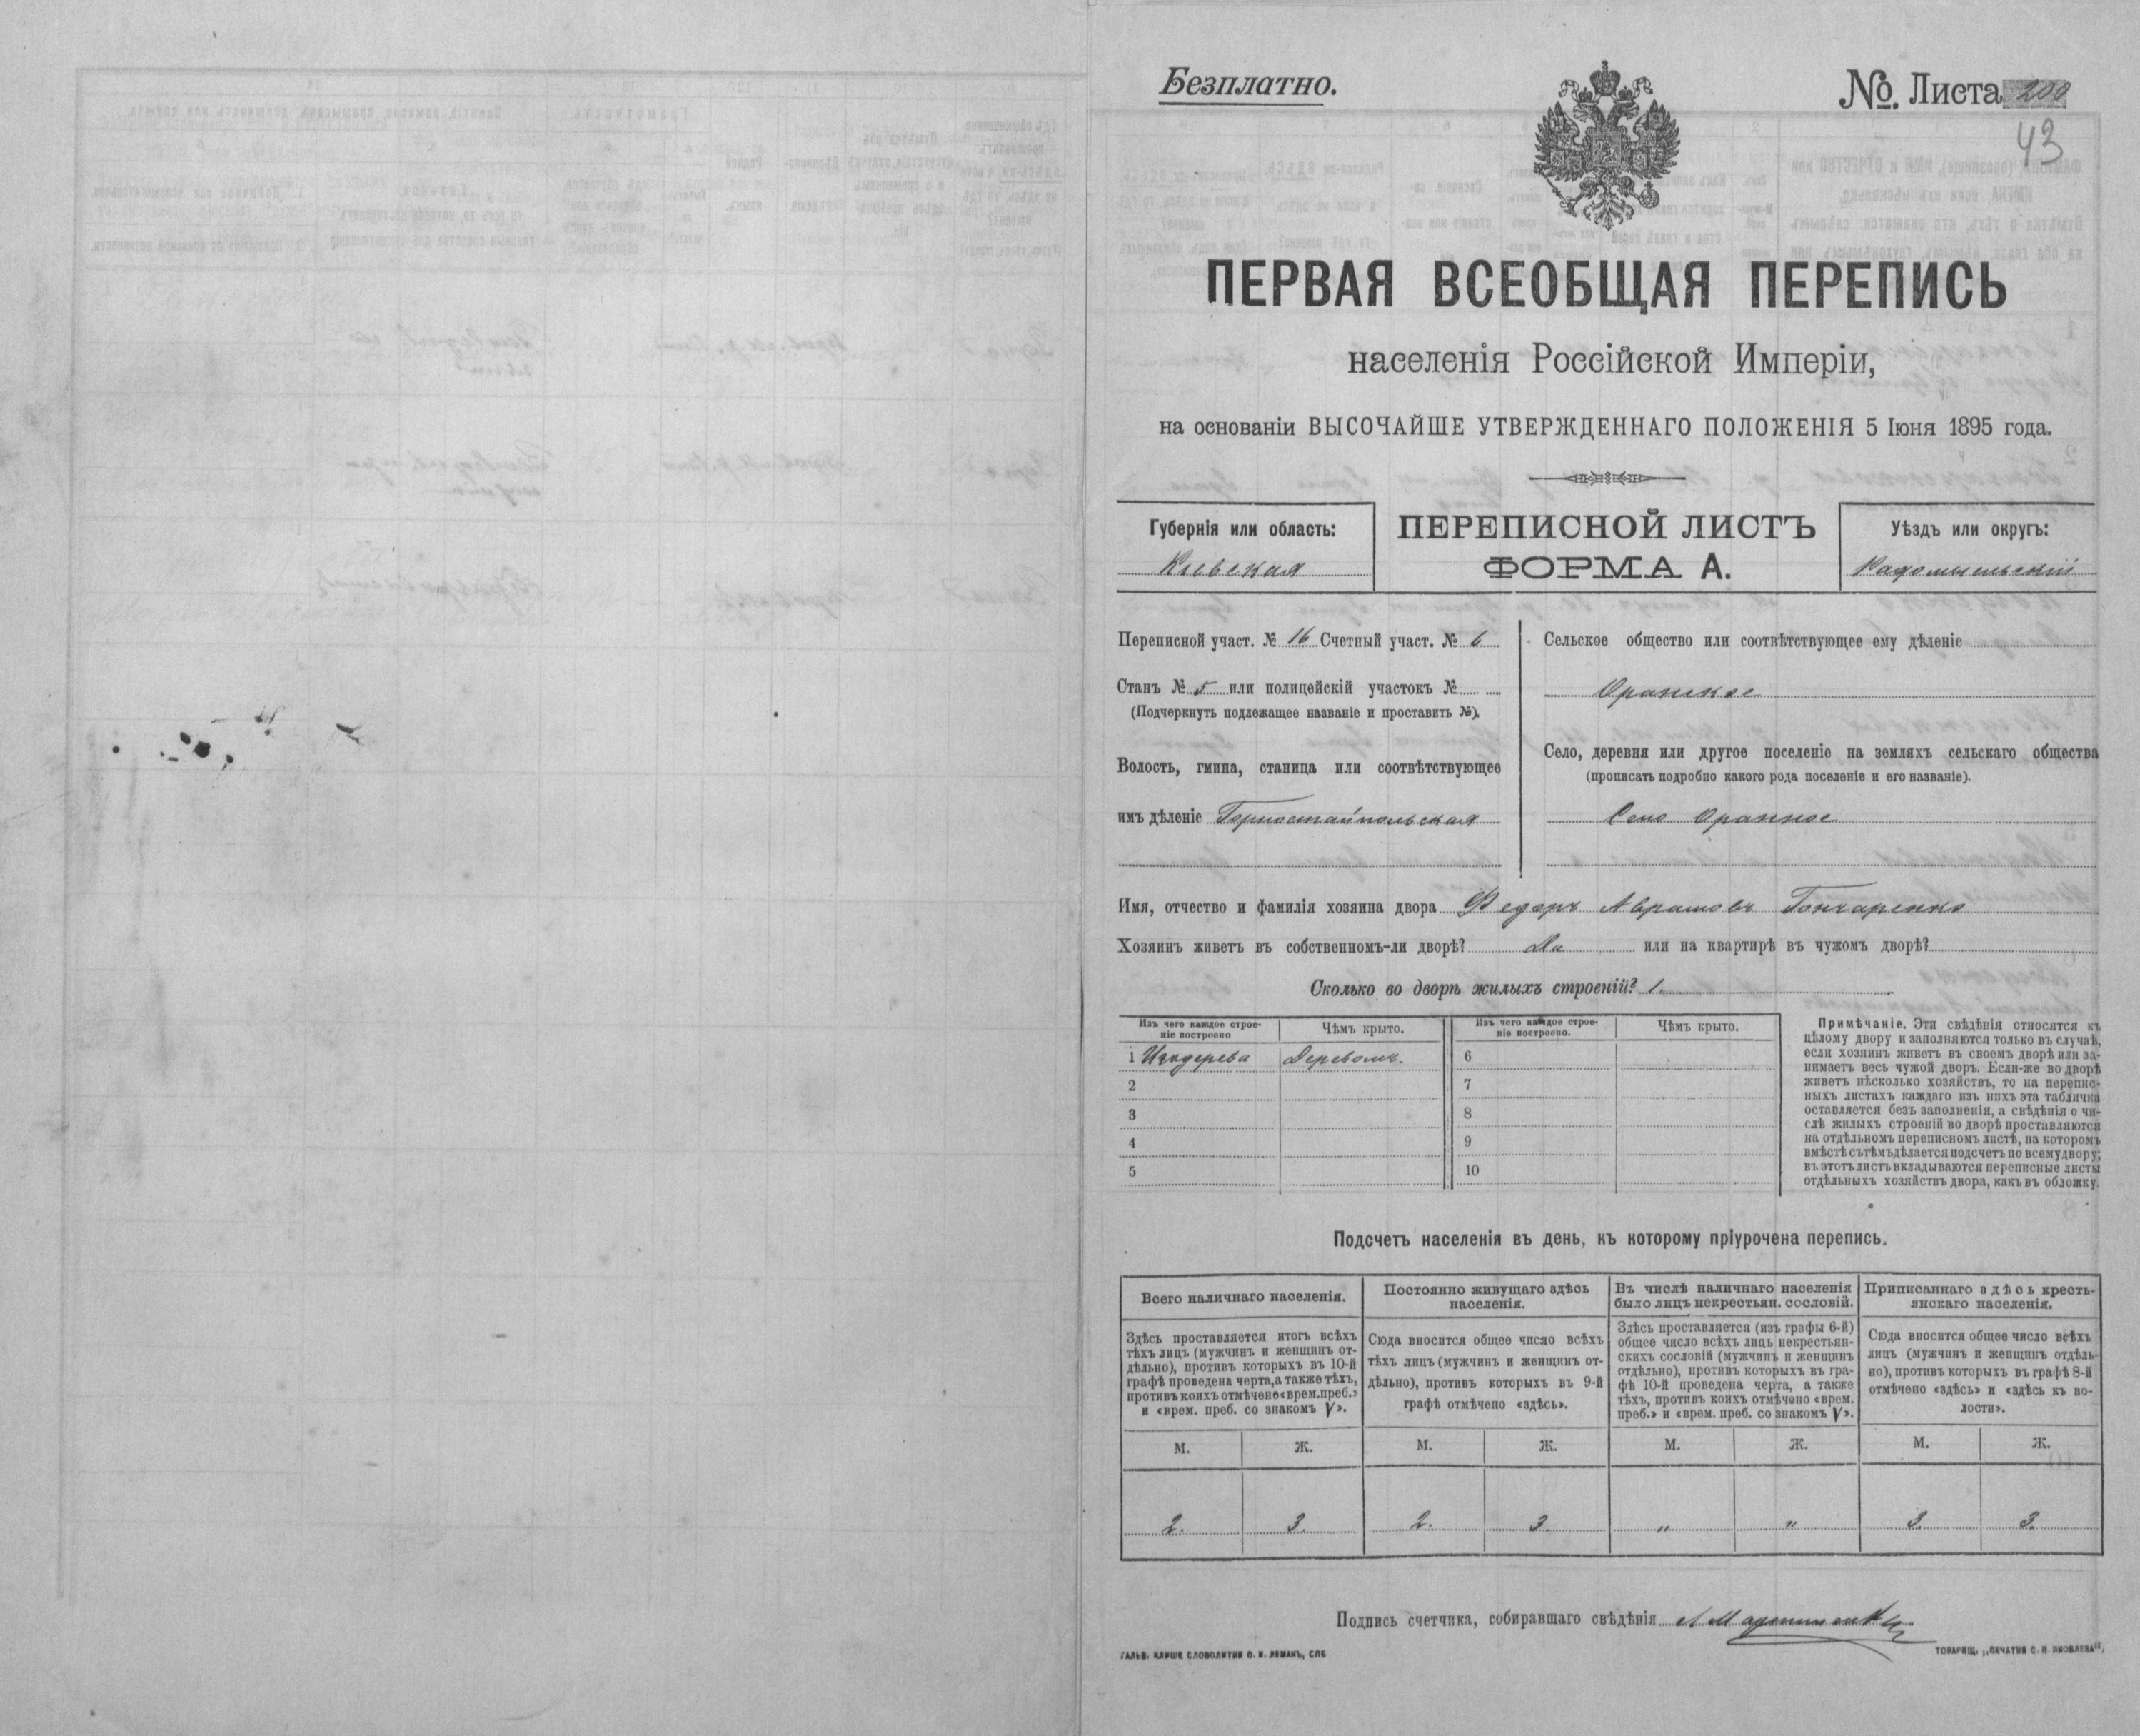 Безплатно.
№. Листа 200
43
ПЕРВАЯ ВСЕОБЩАЯ ПЕРЕПИСЬ
населенія Россійской Имперіи,
на основаніи ВЫСОЧАЙШЕ УТВЕРЖДЕННАГО ПОЛОЖЕНІЯ 5 Іюня 1895 года.
Губернія или область:
Кіевская
ПЕРЕПИСНОЙ ЛИСТЪ
ФОРМА А.
Уѣздъ или округъ:
Радомысльскій
Переписной участ. № 16 Счетный участ. № 6
Станъ № 5 или полицейскій участокъ №
(Подчеркнуть подлежащее названіе и проставить №).
Волость, гмина, станица или соотвѣтствующее
имъ дѣленіе Горностайпольская
Сельское общество или соотвѣтствующее ему дѣленіе
Оранское
Село, деревня или другое поселеніе на земляхъ сельскаго общества
(прописать подробно какого рода поселеніе и его названіе).
Село Оранное
Имя, отчество и фамилія хозяина двора Федоръ Аврамовъ Гончаренко
Хозяинъ живетъ въ собственномъ-ли дворѣ? Да или на квартирѣ въ чужомъ дворѣ?
Сколько во дворѣ жилыхъ строеній? 1.
Изъ чего каждое строе-
ніе построено
Чѣмъ крыто.
Изъ чего каждое строе-
ніе построено.
Чѣмъ крыто.
1 Изъ дерева Деревомъ.
2
3
4
5
6
7
8
9
10
Примѣчаніе. Эти свѣдѣнія относятся къ
цѣлому двору и заполняются только въ случаѣ,
если хозяинъ живетъ въ своемъ дворѣ или за-
нимаетъ весь чужой дворъ. Если-же во дворѣ
живетъ нѣсколько хозяйствъ, то на перепис-
ныхъ листахъ каждаго изъ нихъ эта табличка
оставляется безъ заполненія, а свѣдѣнія о чи-
слѣ жилыхъ строеній во дворѣ проставляются
на отдѣльномъ переписномъ листѣ, на которомъ
вмѣстѣ съ тѣмъ дѣлается подсчетъ по всему двору;
въ этотъ листъ вкладываются переписные листы
отдѣльныхъ хозяйствъ двора, какъ въ обложку.
Подсчетъ населенія въ день, къ которому пріурочена перепись.
Всего наличнаго населенія.
Здѣсь проставляется итогъ всѣхъ
тѣхъ лицъ (мужчинъ и женщинъ от-
дѣльно), противъ которыхъ въ 10-й
графѣ проведена черта, а также тѣхъ,
противъ коихъ отмѣчено «врем. преб.»
и «врем. преб. со знакомъ V».
Постоянно живущаго здѣсь
населенія.
Сюда вносится общее число всѣхъ
тѣхъ лицъ (мужчинъ и женщинъ от-
дѣльно), противъ которыхъ въ 9-й
графѣ отмѣчено «здѣсь».
Въ числѣ наличнаго населенія
было лицъ некрестьян. сословій.
Здѣсь проставляется (изъ графы 6-й)
общее число всѣхъ лицъ некрестьян-
скихъ сословій (мужчинъ и женщинъ
отдѣльно), противъ которыхъ въ гра-
фѣ 10-й проведена черта, а также
тѣхъ, противъ коихъ отмѣчено «врем.
преб.» и «врем. преб. со знакомъ V».
Приписаннаго здѣсь кресть-
янскаго населенія.
Сюда вносится общее число всѣхъ
лицъ (мужчинъ и женщинъ отдѣль-
но), противъ которыхъ въ графѣ 8-й
отмѣчено «здѣсь» и «здѣсь къ во-
лости».
М. Ж. М. Ж. М. Ж. М. Ж.
2. 3. 2. 3. " " 3. 3.
Подпись счетчика, собиравшаго свѣдѣнія
ГАЛЬВ. КЛИШЕ СЛОВОЛИТНИ О. И. ЛЕМАНЪ, СПБ
ТОВАРИЩ. „ПЕЧАТНЯ С. П. ЯКОВЛЕВА".